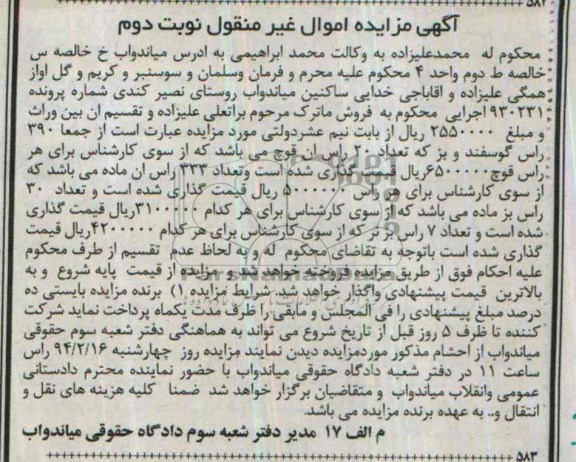 ۵۸۲
آگهی مزایده اموال غیر منقول نوبت دوم
محکوم له محمدعلیزاده به وکالت محمد ابراهیمی به ادرس میاندواب خ خالصه س
خالصه ط دوم واحد ۴ محکوم علیه محرم و فرمان وسلمان و سوسنبر و کریم و گل اواز
همگی علیزاده و اقاباجی خدایی ساکنین میاندواب روستای نصیر کندی شماره پرونده
۹۳۰۲۳۱ اجرایی محکوم به فروش ماترک مرحوم براتعلی علیزاده و تقسیم ان بین وراث
و مبلغ ۲۵۵۰۰۰۰ ریال از بابت نیم عشردولتی مورد مزایده عبارت است از جمعا ۳۹۰
راس گوسفند و بز که تعداد ۲۰ راس ان قوچ می باشد که از سوی کارشناس برای هر
راس قوچ ۶۵۰۰۰۰۰ ریال قیمت گذاری شده است وتعداد ۳۳۳ راس ان ماده می باشد که
از سوی کارشناس برای هر راس ۵۰۰۰۰۰۰ ریال قیمت گذاری شده است و تعداد ۳۰
راس بز ماده می باشد که از سوی کارشناس برای هر کدام ۳۱۰۰۰۰۰ ریال قیمت گذاری
شده است و تعداد ۷ راس بز نر که از سوی کارشناس برای هر کدام ۴۲۰۰۰۰۰ ریال قیمت
گذاری شده است باتوجه به تقاضای محکوم له و به لحاظ عدم تقسیم از طرف محکوم
علیه احکام فوق از طریق مزایده فروخته خواهد شد و مزایده از قیمت پایه شروع و به
بالاترین قیمت پیشنهادی واگذار خواهد شد. شرایط مزایده ۱) برنده مزایده بایستی ده
درصد مبلغ پیشنهادی را فی المجلس و مابقی را ظرف مدت یکماه پرداخت نماید شرکت
کننده تا ظرف ۵ روز قبل از تاریخ شروع می تواند به هماهنگی دفتر شعبه سوم حقوقی
میاندواب از احشام مذکور موردمزایده دیدن نمایند مزایده روز چهارشنبه ۹۴/۲/۱۶ راس
ساعت ۱۱ در دفتر شعبه دادگاه حقوقی میاندواب با حضور نماینده محترم دادستانی
عمومی وانقلاب میاندواب و متقاضیان برگزار خواهد شد ضمنا کلیه هزینه های نقل و
انتقال و.. به عهده برنده مزایده می باشد.
م الف ۱۷ مدیر دفتر شعبه سوم دادگاه حقوقی میاندواب
۵۸۳